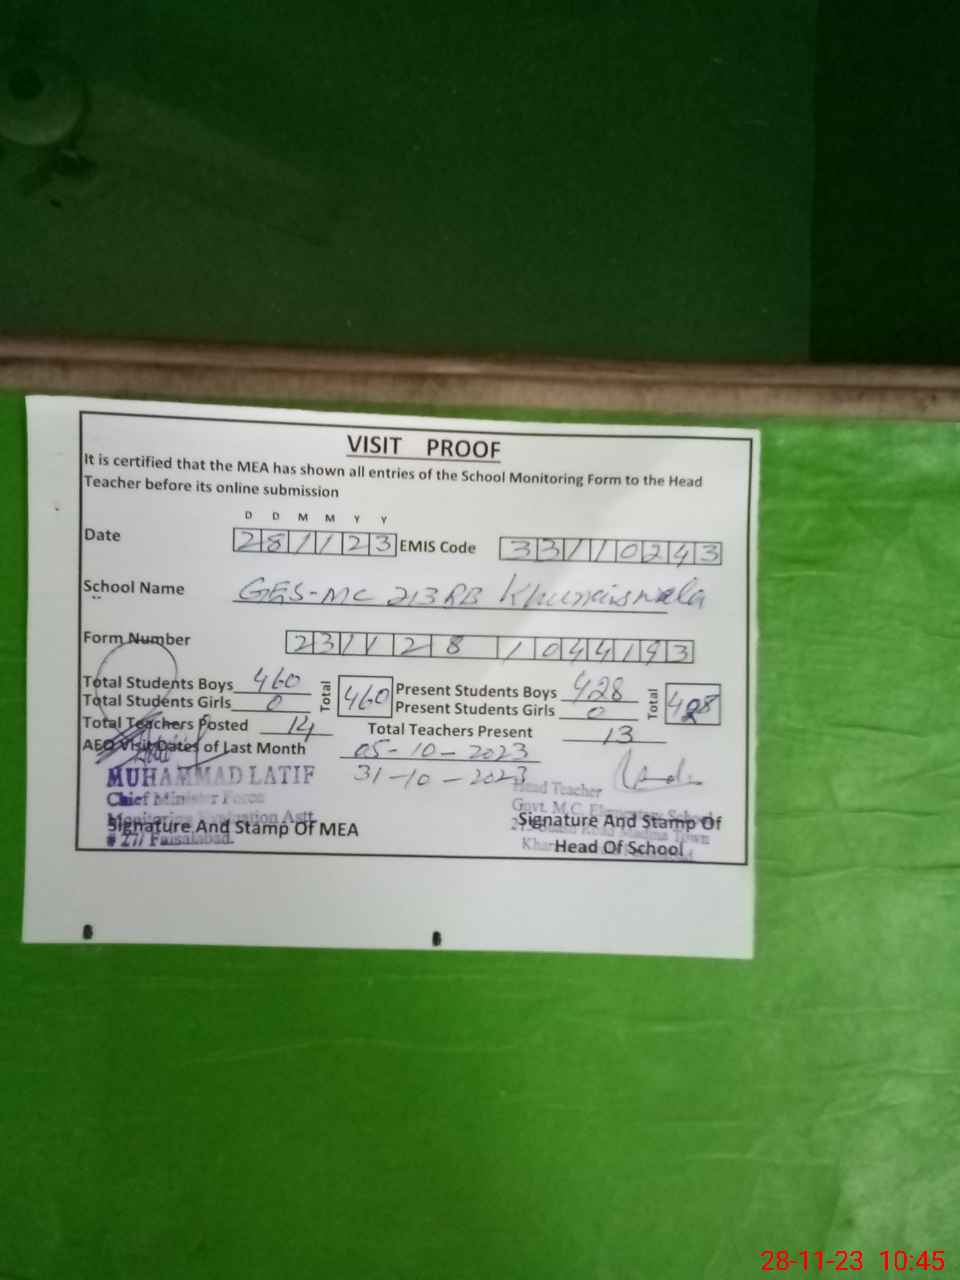 VISIT PROOF
It is certified that the MEA has shown all entries of the School Monitoring Form to the Head
Teacher before its online submission
D D M M Y Y
Date 281123 EMIS Code 33110243
School Name GES-MC 213 RB Khuraiswala
Form Number 231128 1044193
Total Students Boys 460 Total 460 Present Students Boys 428 Total 428
Total Students Girls 0 Present Students Girls 0
Total Teachers Posted 14 Total Teachers Present 13
AEO Visit Dates of Last Month 05-10-2023
31-10-2023
MUHAMMAD LATIF
Chief Minister Force
Monitoring Evaluation Astt.
# 277 Faisalabad.
Signature And Stamp Of MEA
Head Teacher
Govt. M.C. Elementary School
Town
Signature And Stamp Of
Head Of School
28-11-23 10:45